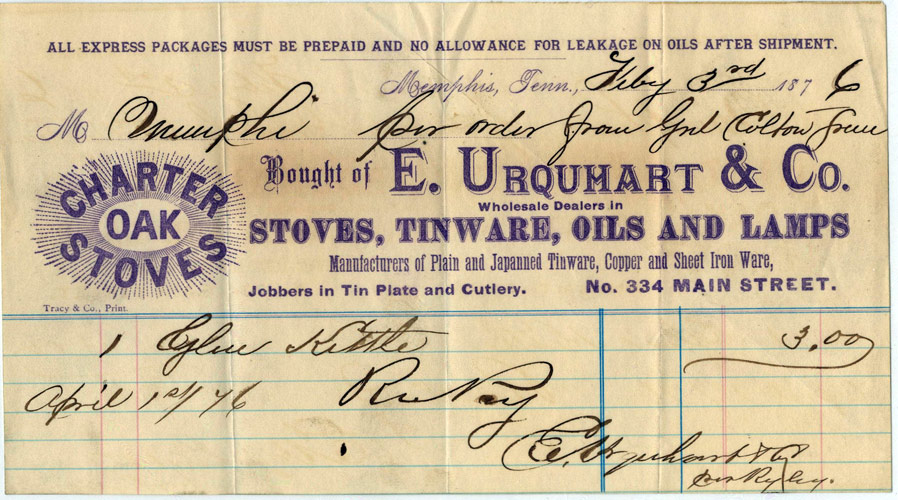 ALL EXPRESS PACKAGES MUST BE PREPAID AND NO ALLOWANCE FOR LEAKAGE ON OILS AFTER SHIPMENT.
Memphis, Tenn., Feby 3rd 1876
M per order from Colton
CHARTER OAK STOVES
Bought of E. URQUHART & Co.
Wholesale Dealers in
STOVES, TINWARE, OILS AND LAMPS
Manufacturers of Plain and Japanned Tinware, Copper and Sheet Iron Ware,
Jobbers in Tin Plate and Cutlery. No. 334 MAIN STREET.
Tracy & Co., Print.
1 Glue Kettle 3.00
April 1st/76 Rec Pay
E. Urquhart & Co
per